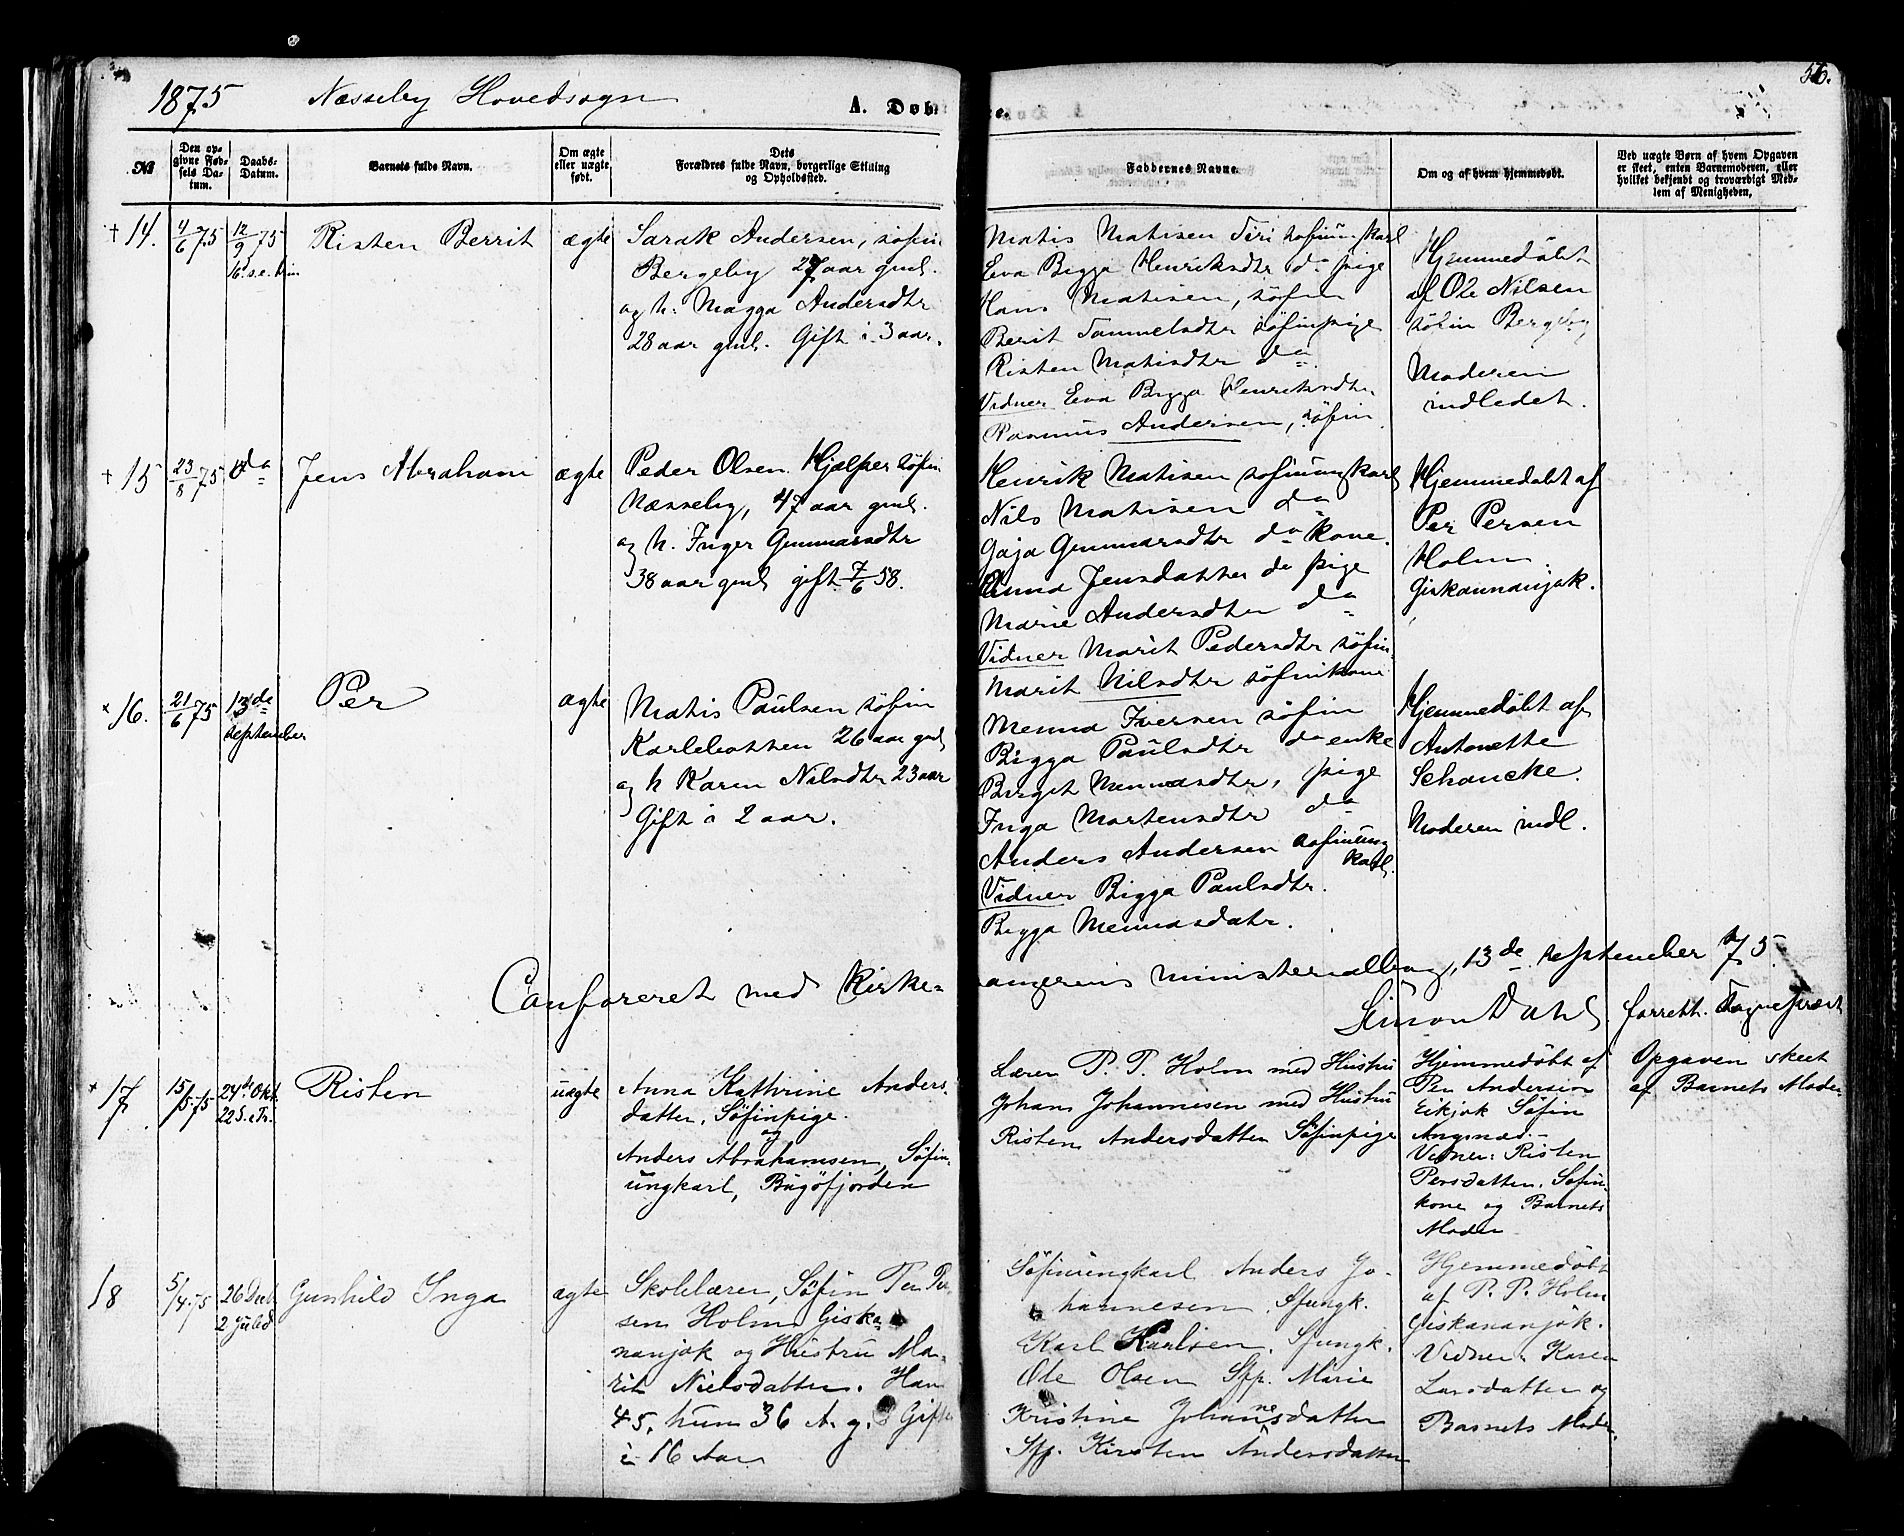 1875 Næsseby Hovedsogn A. Døbte.
56.
№
Den opgivne Fødsels Datum.
Daabs-Datum.
Barnets fulde Navn.
Om ægte eller uægte født.
Dets Forældres fulde Navn, borgerlige Stilling og Opholdssted.
Faddernes Navne.
Om og af hvem hjemmedøbt.
Ved uægte Børn af hvem Opgaven er skeet, enten Barnemoderen, eller hvilket bekjendt og troværdigt Medlem af Menigheden.
+ 14.
4/6 75
12/9 75
16. s. e. Trin.
Risten Berrit
ægte
Sarak Andersen, søfin
Bergeby 27 aar gml.
og h. Magga Andersdtr
28 aar gml. Gift i 3 aar.
Matis Matisen Siri søfinungkarl
Eva Bigga Henriksdtr do pige
Hans Matisen, søfin
Berit Sammelsdtr søfinpige
Risten Matisdtr do
Vidner Eva Bigga Henriksdtr
Rasmus Andersen, søfin
Hjemmedøbt
af Ole Nilsen
søfin Bergeby
Moderen
indledet.
+ 15
23/8 75
do
Jens Abraham
ægte
Peder Olsen Hjælper søfin
Næsseby, 47 aar gml.
og h. Inger Gunnarsdtr
38 aar gml gift 7/6 58.
Henrik Matisen søfinungkarl
Nils Matisen do
Gaja Gunnarsdtr do kone.
Jensdatter do pige
Marie Andersdtr do
Vidner Marit Pedersdtr søfin
Marit Nilsdtr søfinkone
Hjemmedøbt af
Per Persen
Holm
Giskannanjok.
× 16.
21/6 75
13de
september
Per
ægte
Matis Paulsen søfin
Karlebotten 26 aar gml
og h Karen Nilsdtr 23 aar
Gift i 2 aar.
Menna Iversen søfin
Bigga Paulsdtr do enke
Birget Mennasdtr, pige
Inga Mortensdtr do
Anders Andersen søfinung
karl.
Vidner Bigga Paulsdtr.
Bigga Mennasdatr.
Hjemmedøbt af
Antonette
Schancke.
Moderen indl.
Confereret med Kirkesangerens ministerialbog, 13de september 75.
Simon Dahl forrett. Sognepræst
× 17
15/5 75
24de Okt.
22 S. e. Tr.
Risten
uægte
Anna Kathrine Anders-
datter, Søfinpige.
og
Anders Abrahamsen, Søfin-
ungkarl, Bugøfjorden
Lærer P. P. Holm med Hustru
Johans Johannesen med Hustru
Risten Andersdatter Søfinpige
Hjemmedøbt af
Per Andersen
Søfin
Angsnæs.
Vidner: Risten
Persdatter, Søfin-
kone og Barnets
Moder
Opgaven skeet
af Barnets Moder
18
5/4 75
26 Decb
2 Juled
Gunhild Inga
ægte
Skolelærer, Søfin Per Per-
sen Holm Giska-
nanjok og Hustru Ma-
rit Nielsdatter. Han
45, hun 36 A. g. Gifte
i 16 Aar
Søfinungkarl Anders Jo-
hannesen, Sfungk.
Karl Karlsen, Sfungk.
Ole Olsen Sfp. Marie
Kristine Johannesdatter
Sfp. Kirsten Andersdatter
Hjemmedøbt
af P. P. Holm
Giskananjok.
Vidner: Karen
Larsdatter og
Barnets Moder.